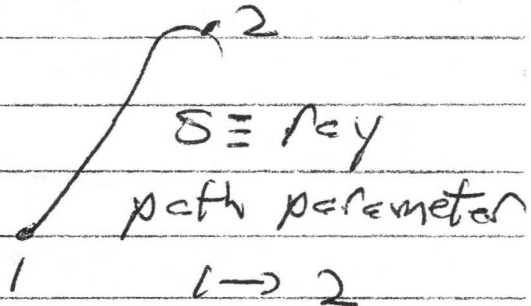 2
S ≡ ray
path parameter
1
1 → 2